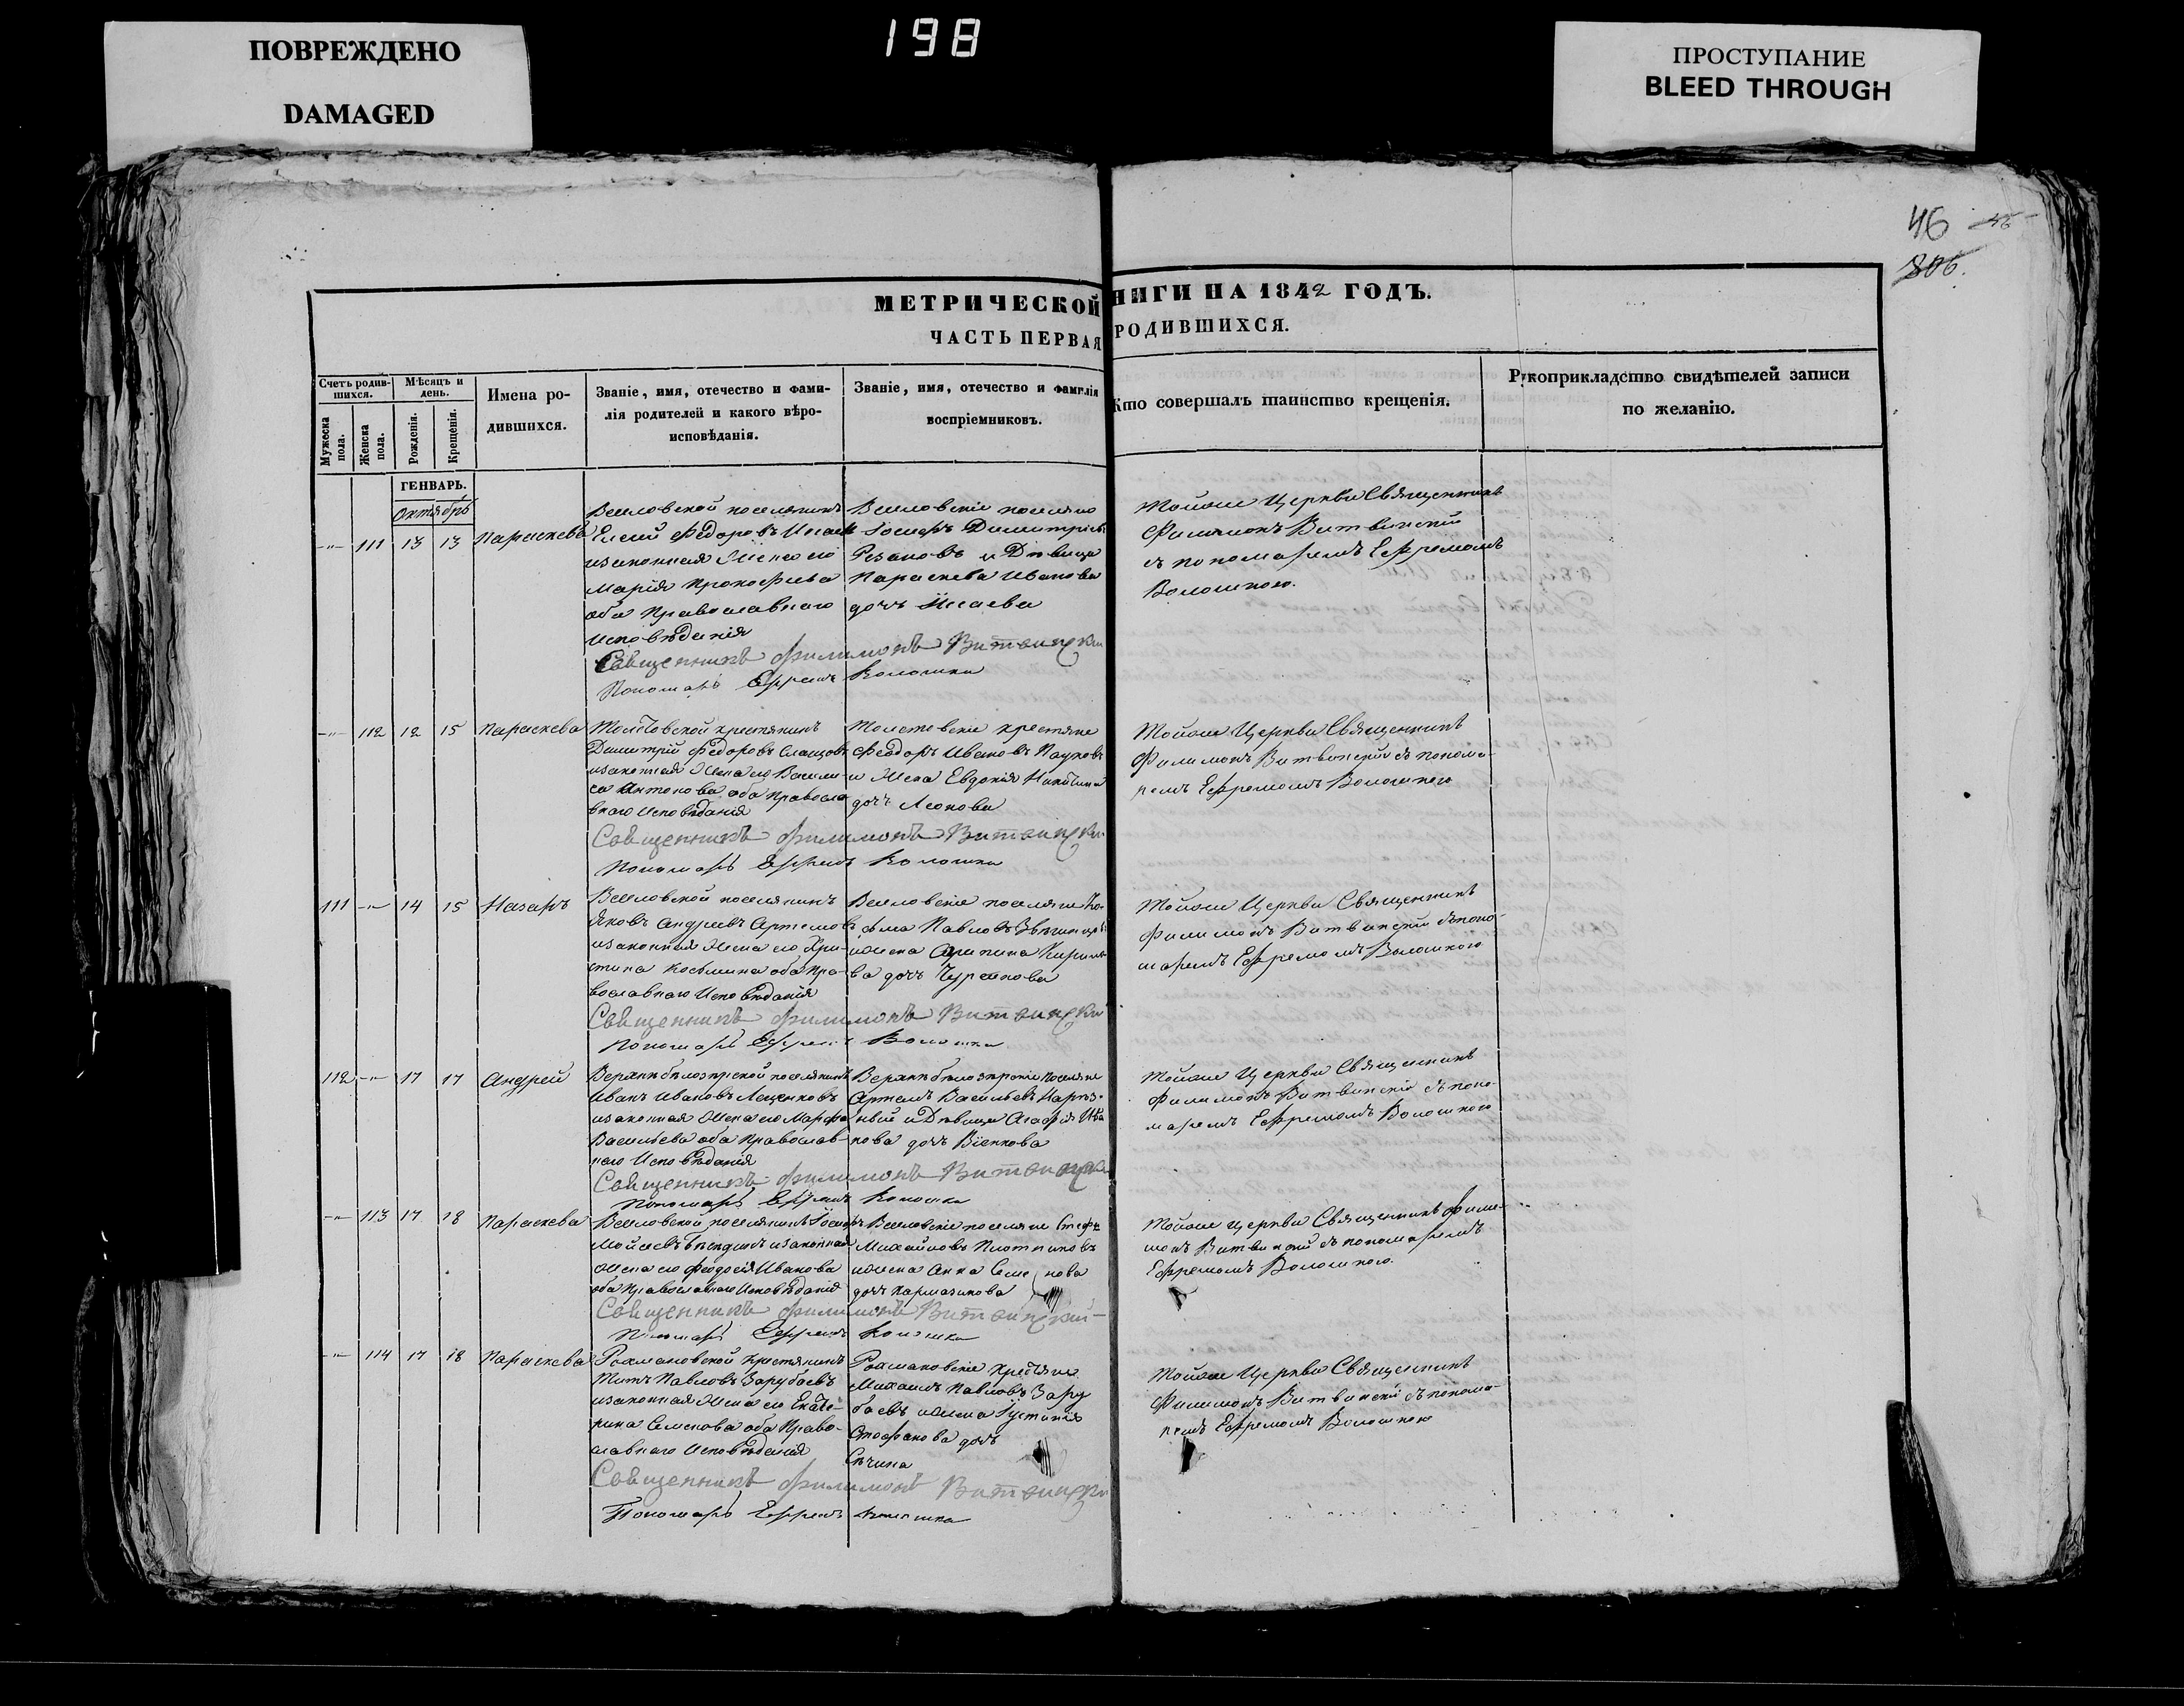 ПОВРЕЖДЕНО
DAMAGED
198
ПРОСТУПАНИЕ
BLEED THROUGH
46
МЕТРИЧЕСКОЙ
НИГИ НА 1842 ГОДЪ.
ЧАСТЬ ПЕРВАЯ
РОДИВШИХСЯ.
Счетъ родив-
шихся.
Мужеска
пола.
Женска
пола.
Мѣсяцъ и
день.
Рожденія.
Крещенія.
Имена ро-
дившихся.
Званіе, имя, отечество и фами-
лія родителей и какого вѣро-
исповѣданія.
Званіе, имя, отечество и фамилія
воспріемниковъ.
Кто совершалъ таинство крещенія.
Рукоприкладство свидѣтелей записи
по желанію.
ГЕНВАРЬ.
Октябрь
111 13 13 Параскева
Веселовской поселянинъ
Елисей Федоровъ
изаконная Жена его
Марія Прокофьева
оба Православнаго
Исповѣданія
поселяне
Іосифъ Димитріевъ
Резановъ и Дѣвица
Параскева Иванова
дочь Исаева
Тойже Церкви Священникъ
Филимонъ Витвинскій
съ пономаремъ Ефремомъ
Волошкою.
Священникъ Филимонъ Витвинскій
Пономарь Ефремъ Волошка
112 12 15 Параскева
крестянинъ
Димитрій Федоровъ
изаконная Жена его Васили-
са Антонова оба Правосла
внаго Исповѣданія
крестяне
Феодоръ Ивановъ Пауковъ
и Жена Евдокія Никитина
дочь Леонова
Тойже Церкви Священникъ
Филимонъ Витвинскій съ понома-
ремъ Ефремомъ Волошкою
Священникъ Филимонъ Витвинскій
Пономарь Ефремъ Волошка
111 14 15 Назаръ
Веселовской поселянинъ
Яковъ Андреевъ Артемов
изаконная Жена его Хри-
стина Косьмина оба Пра-
вославнаго Исповѣданія
поселяне Ко-
сма Павловъ
иЖена
ва дочь
Тойже Церкви Священникъ
Филимонъ Витвинскій съ поно-
маремъ Ефремомъ Волошкою
Священникъ Филимонъ Витвинскій
Пономарь Ефремъ Волошка
112 17 17 Андрей
поселянинъ
Иванъ Ивановъ Лещенковъ
изаконная Жена его Марфа
Васильева оба Православ-
наго Исповѣданія
поселяне
Артемъ Васильевъ
и Дѣвица Агафія Ива
нова дочь
Тойже Церкви Священникъ
Филимонъ Витвинскій съ поно-
маремъ Ефремомъ Волошкою
Священникъ Филимонъ
Пономарь Ефремъ Волошка
113 17 18 Параскева
Веселовской поселянинъ
Мойсеевъ изаконная
Жена его Феодосія Иванова
оба Православнаго Исповѣданія
поселяне
Михайловъ Плотниковъ
иЖена Анна Семе нова
дочь Кармазинова
Тойже Церкви Священникъ Фили-
монъ Витвинскій съ пономаремъ
Ефремомъ Волошкою.
Священникъ Филимонъ Витвинскій
Пономарь Ефремъ Волошка
114 17 18 Параскева
Рахмановской крестянинъ
Титъ Павловъ Зарубаевъ
изаконная Жена его Екате-
рина Семенова оба Право-
славнаго Исповѣданія
Рахмановскіе крестяне
Михаилъ Павловъ Зару
баевъ иЖена Іустинія
Стефанова дочь
Тойже Церкви Священникъ
Филимонъ Витвинскій съ понома-
ремъ Ефремомъ Волошкою
Священникъ Филимонъ Витвинскій
Пономарь Ефремъ Волошка